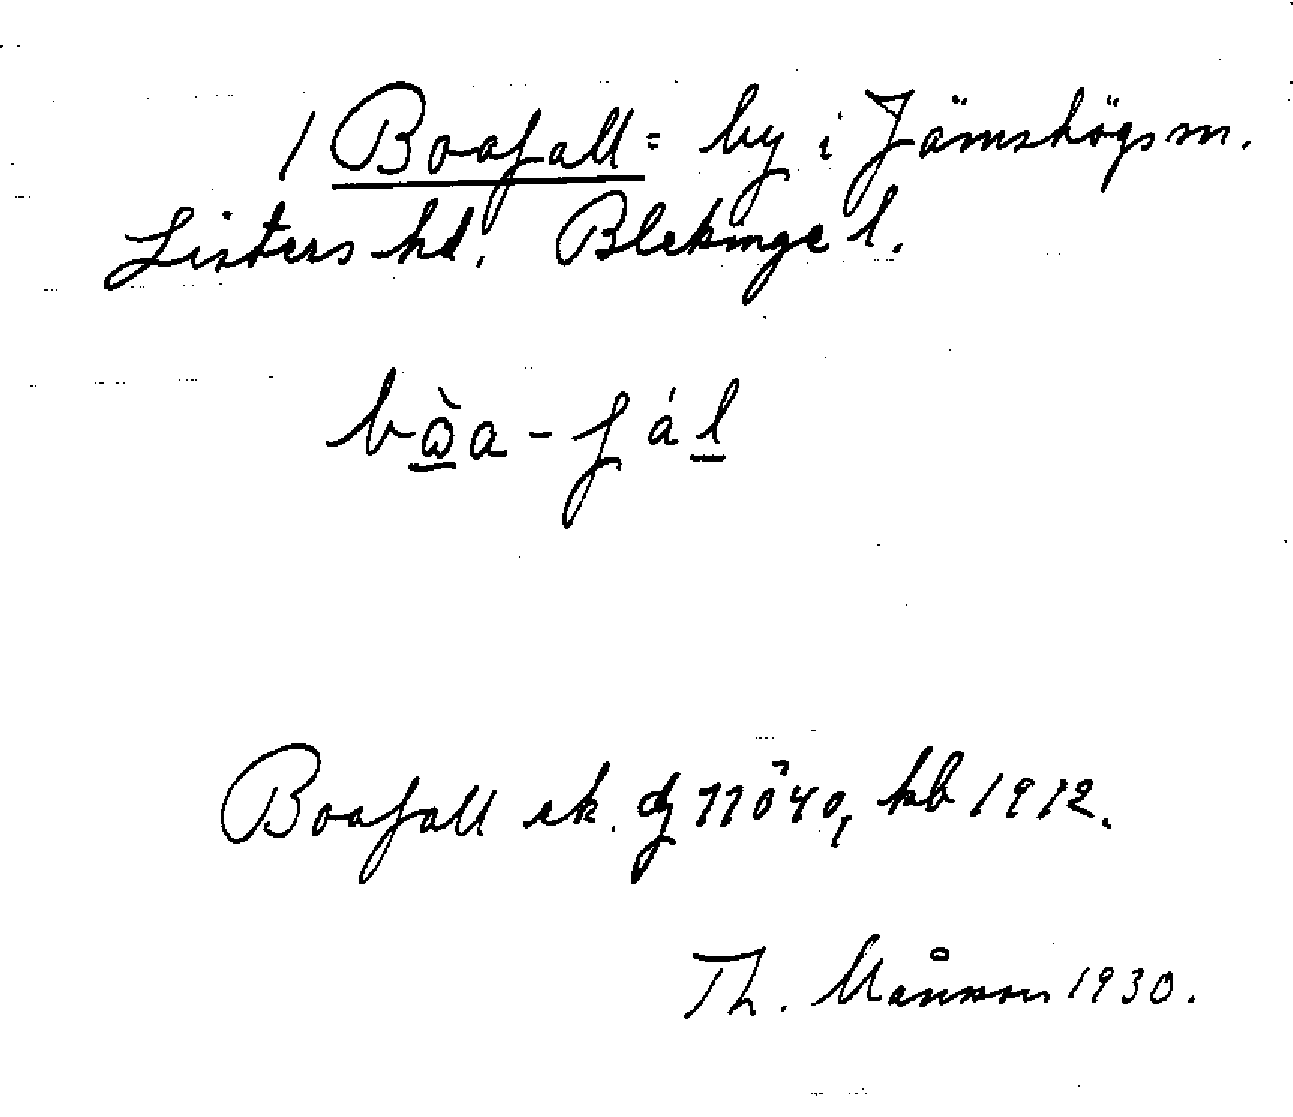 1 Boafall = by i Jämshögs sn.
Listers hd. Blekinge l.
bòa - fál
Boafall sk. 1912.
Th. Månsson 1930.